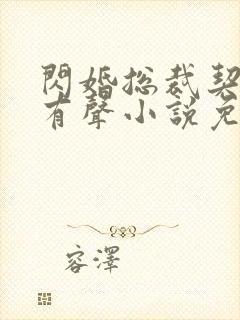 閃婚总裁契
有聲小說免
容澤